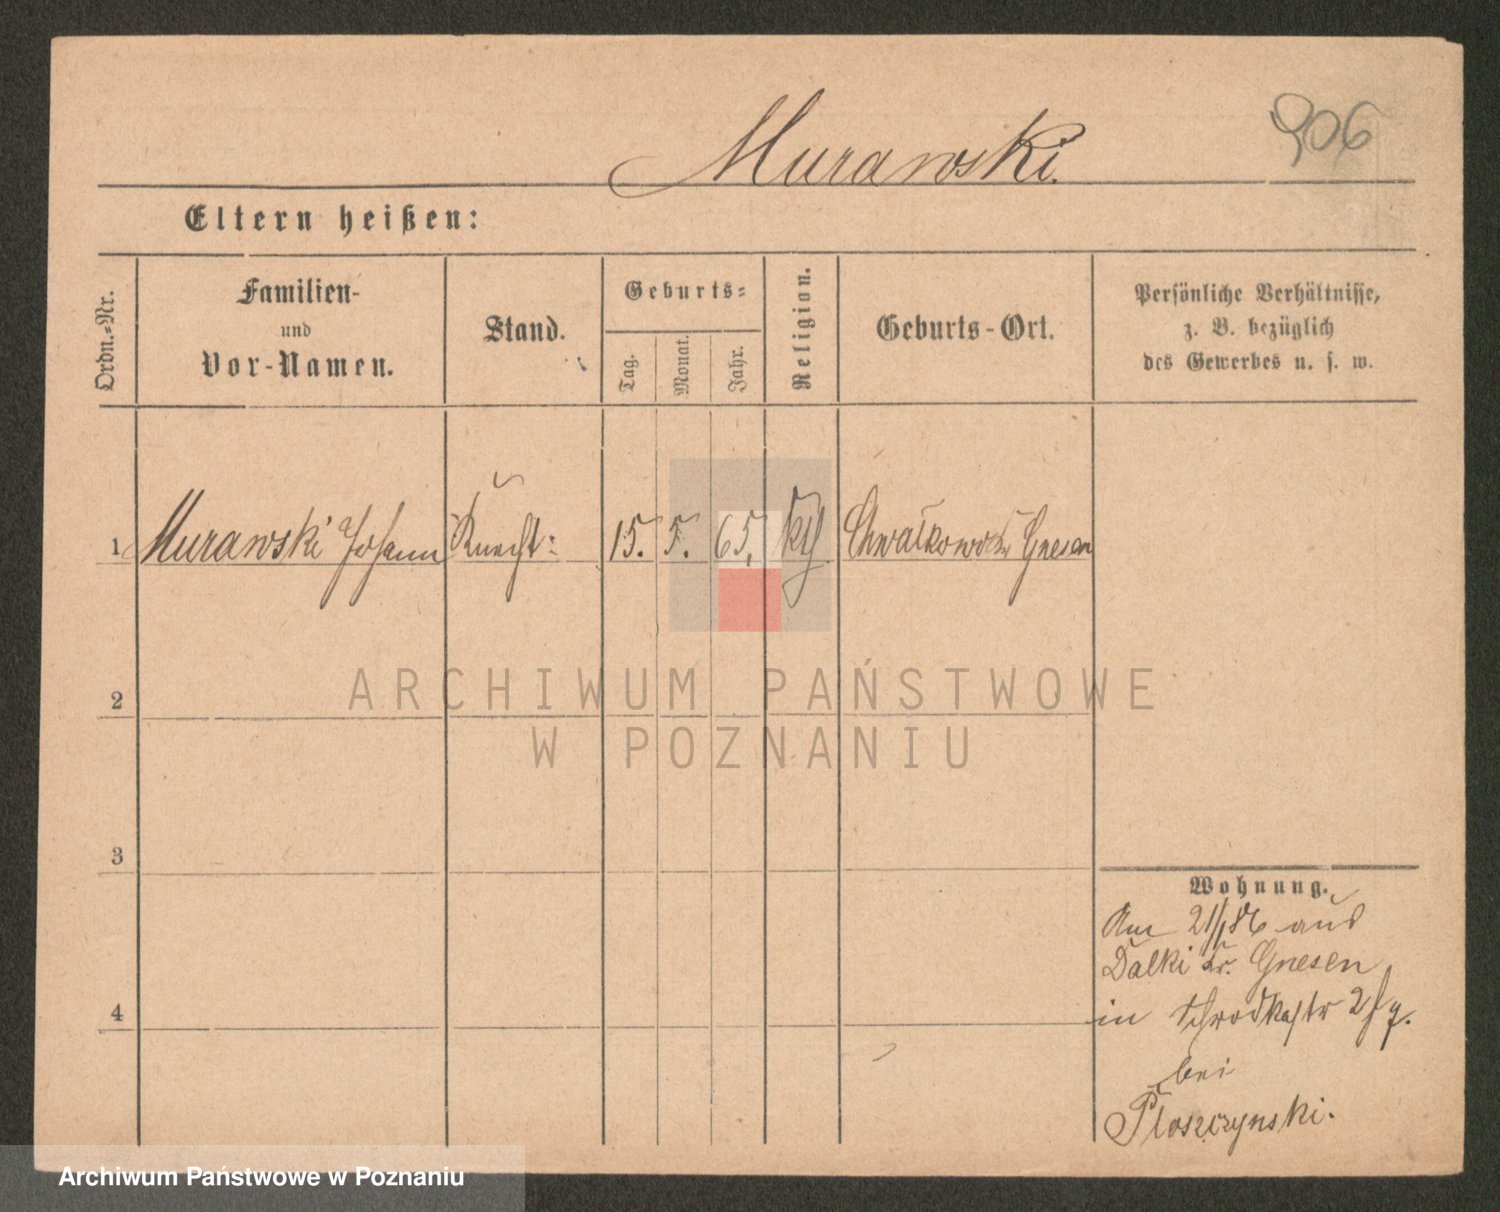 Murawski.
906
Eltern heißen:
Ordn.-Nr.
Familien-
und
Vor-Namen.
Stand.
Geburts-
Tag.
Monat.
Jahr.
Religion.
Geburts-Ort.
Persönliche Verhältnisse,
z. B. bezüglich
des Gewerbes u. s. w.
1 Murawski Johann Knecht: 15. 5. 65. kth Chwalkowo Gnesen
2
3
4
Wohnung.
Am 21/1 86 aus
Dalki Kr. Gnesen
in Schrodkastr 2
bei
Ploszczynski.
ARCHIWUM PAŃSTWOWE
W POZNANIU
Archiwum Państwowe w Poznaniu